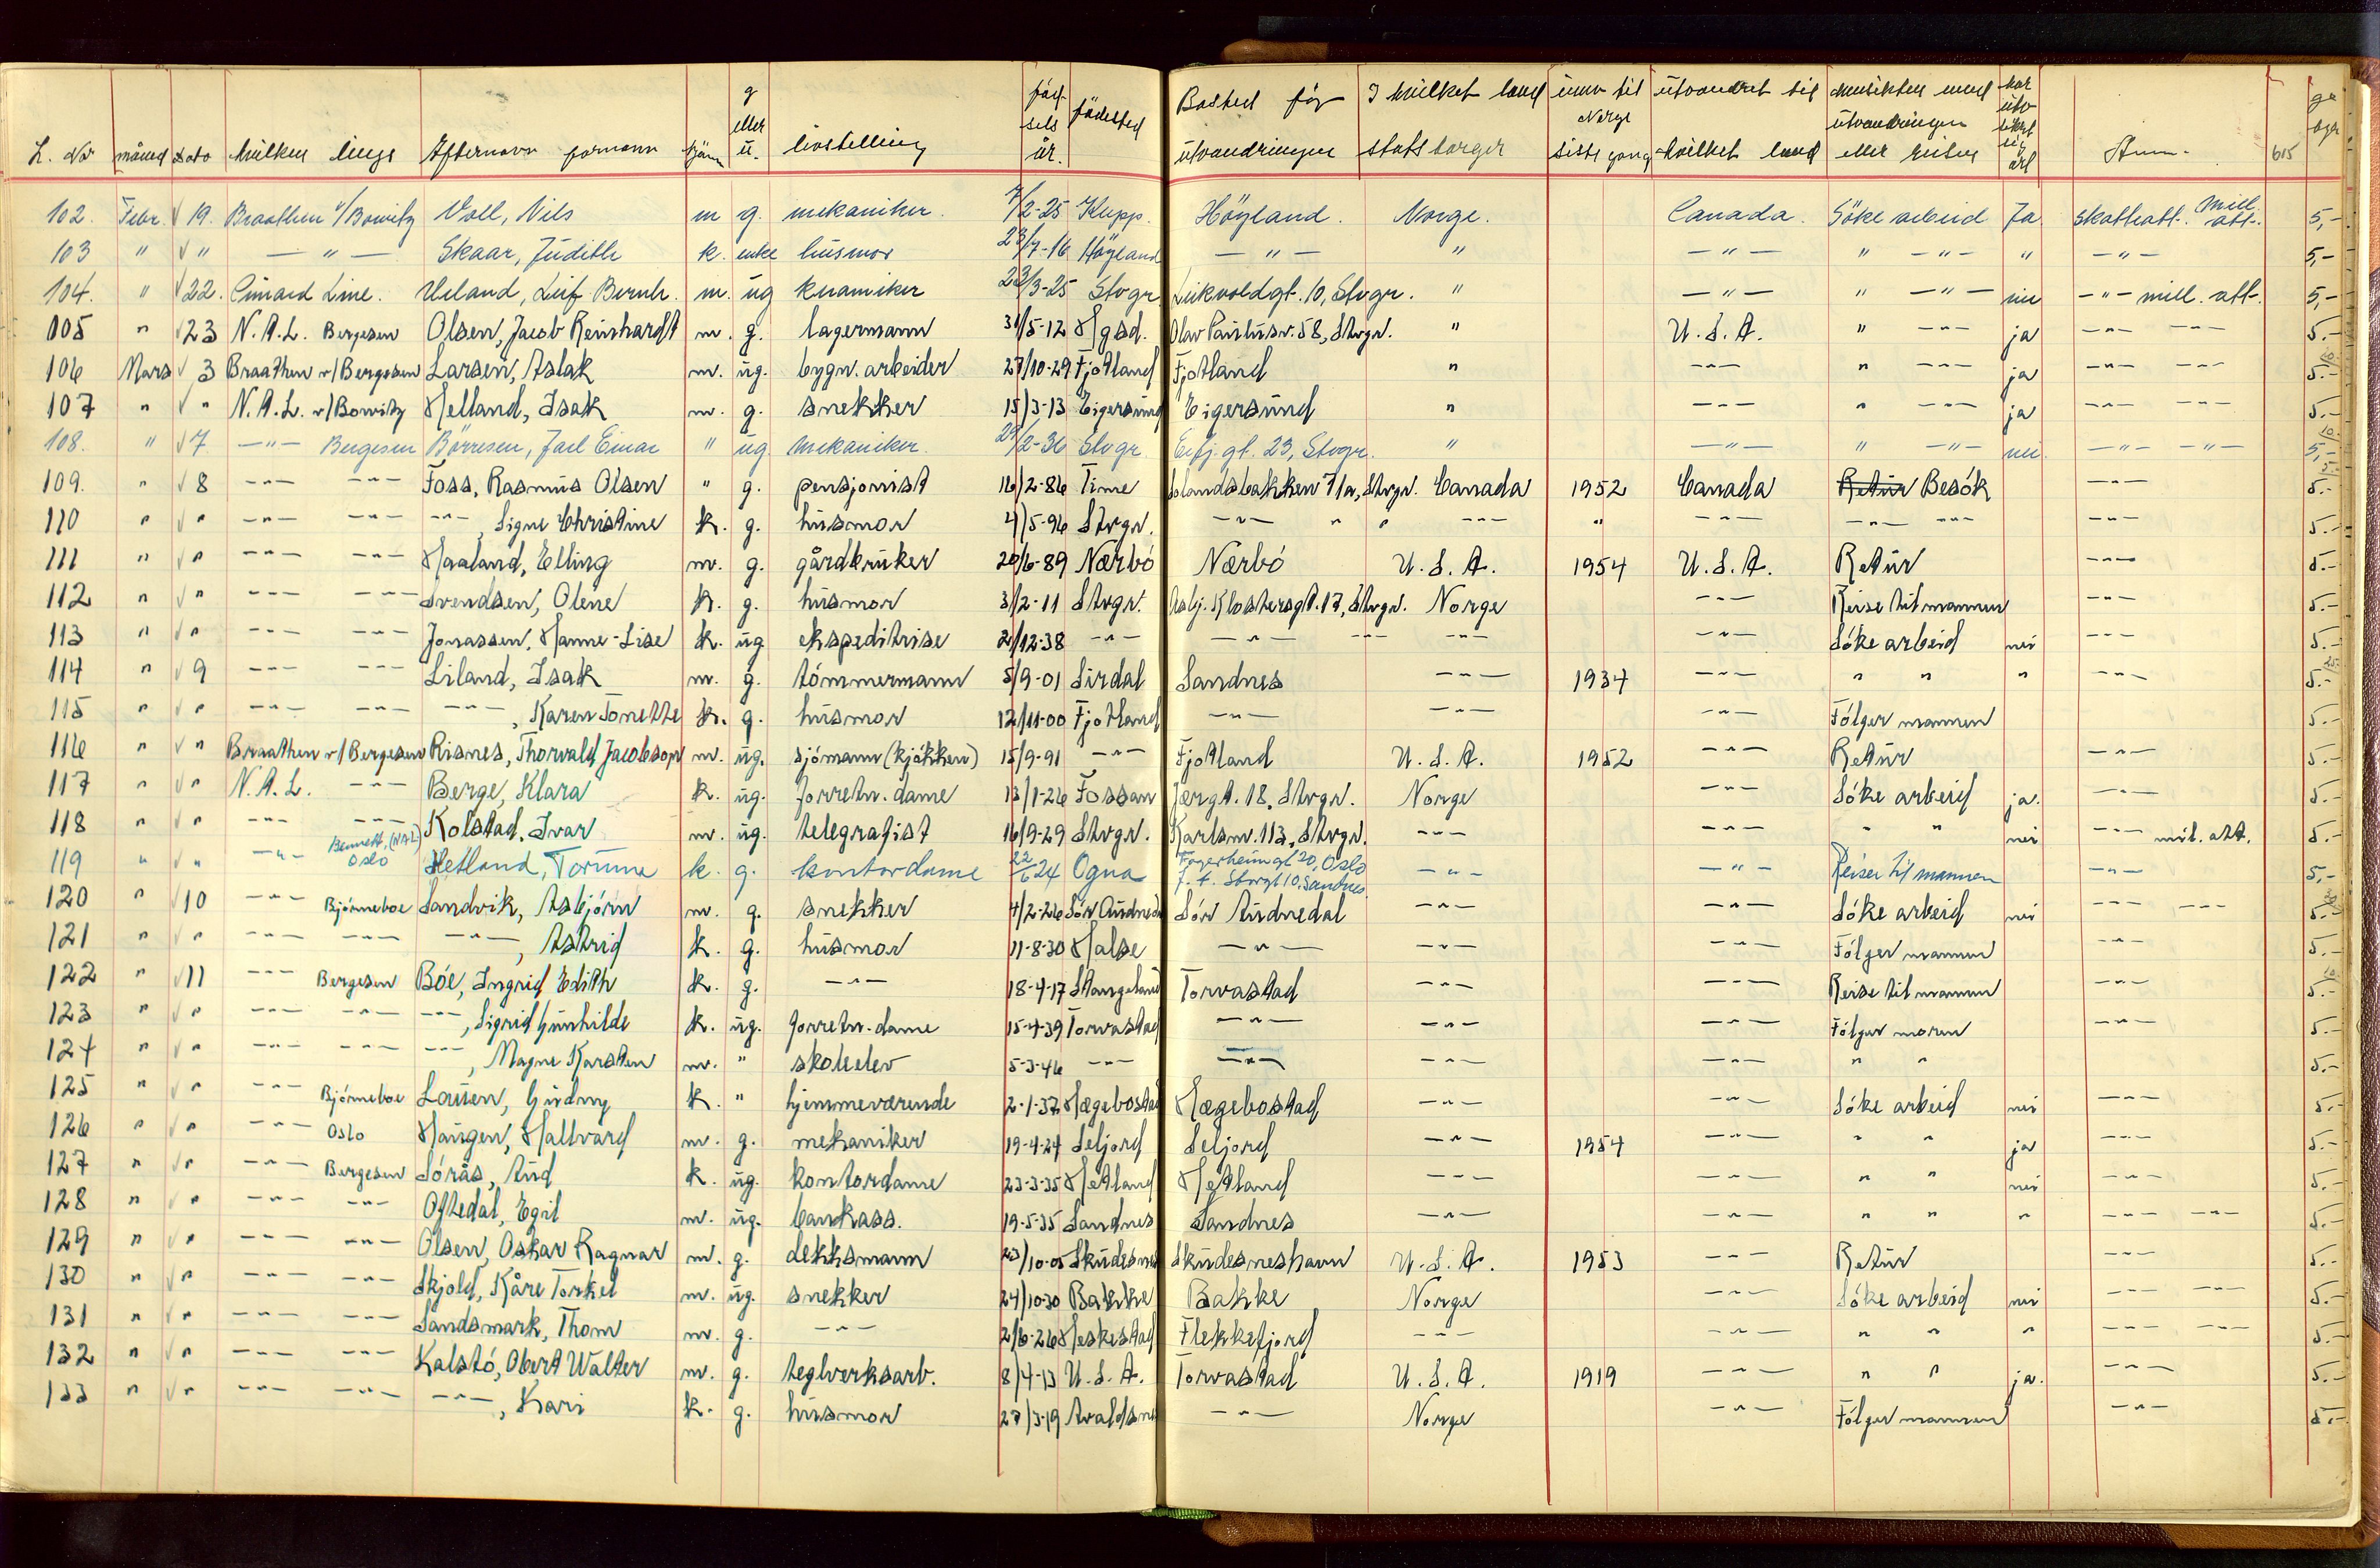 L. Nr måned dato hvilken linje Efternavn fornavn kjønn g eller u. livstilling fød- sels år. fødested Bosted før utvandringen I hvilket land statsborger innv til Norge siste gang utvandret til hvilket land hensikten med utvandringen eller reisen Anm.
102. Febr. √ 19. Braathen v/Bowitz Voll, Nils m g. mekaniker. 7/2-25 Klepp. Höyland. Norge. Canada. Söke arbeid Ja skatteatt. Mill. att. 5,-
103 " √ " — " — Skaar, Judith k. enke husmor 23/9-16 Höyland — " — " — " — " — " — " — " — 5,-
104. " √ 22. Cunard Line. Ueland, Leif Bernh. m. ug keramiker 23/3-25 Stvgr. Leikvoldgt. 10, Stvgr. " — " — " — " — nei — " — mill. att. 5,-
105 " √ 23 N.A.L. Bergesen Olsen, Jacob Reinhardt m. g. lagermann 31/5-12 Hgsd. Olav Paulusv. 58, Stvgr. " U.S.A. " — " — ja — " — — " — 5.-
106 Mars √ 3 Braathen v/Bergesen Larsen, Aslak m. ug. bygn. arbeider 27/10-29 Fjotland Fjotland " — " — " — " — ja — " — — " — 5.- 10.-
107 " √ " N.A.L. v/Bowitz Helland, Isak m. g. snekker 15/3-13 Eigersund Eigersund " — " — " — " — ja — " — — " — 5.-
108. " √ 7 — " — Bergesen Börresen, Jarl Einar " ug mekaniker. 29/2-36 Stvgr Erfj.gt. 23, Stvgr. " — " — " — " — nei. — " — — " — 5,- 10.
109. " √ 8 — " — — " — Foss, Rasmus Olsen " g. pensjonist 16/2-86 Time Solandsbakken 71a, Stvgr. Canada 1952 Canada Retur Besök — " — 5.-
110 " √ " — " — — " — — " —, Signe Christine k. g. husmor 4/5-96 Stvgr. — " — " " — " — " — " — — " — — " — — " — 5.-
111 " √ " — " — — " — Haaland, Elling m. g. gårdbruker 20/6-89 Nærbö Nærbö U.S.A. 1954 U.S.A. Retur — " — 5.-
112 " √ " — " — — " — Svendsen, Olene k. g. husmor 3/2-11 Stvgr. Asbj. Klostersgt. 17, Stvgr. Norge — " — Reise til mannen — " — 5.-
113 " √ " — " — — " — Jonassen, Hanne-Lise k. ug ekspeditrise 2/12-38 — " — — " — — " — — " — — " — Söke arbeid nei — " — 5.-
114 " √ 9 — " — — " — Liland, Isak m. g. tömmermann 5/9-01 Sirdal Sandnes — " — 1934 — " — " " " — " — 5.-
115 " √ " — " — — " — — " —, Karen Tonette k. g. husmor 12/11-00 Fjotland — " — — " — — " — Fölger mannen 5.-
116 " √ " Braathen v/Bergesen Risnes, Thorvald Jacobson m. ug. sjömann (kjökken) 15/9-91 — " — Fjotland U.S.A. 1952 — " — Retur — " — 5.-
117 " √ " N.A.L. — " — Berge, Klara k. ug. forretn. dame 13/1-26 Fossan Jærgt. 18, Stvgr. Norge — " — Söke arbeid ja. — " — 5.-
118 " √ " — " — — " — Kolstad, Ivar m. ug. telegrafist 16/9-29 Stvgr. Karlsm. 113, Stvgr. — " — — " — " " nei — " — mil. att. 5.-
119 " √ " — " — Bennett, (NAL) Oslo Hetland, Torunn k. g. kontordame 22/6 24 Ogna Fagerheimgt 20, Oslo f.t. Storgt 10, Sandnes. — " — — " — Reiser til mannen — " — 5,-
120 " √ 10 — " — Björneboe Sandvik, Asbjörn m. g. snekker 4/2-26 Sör Audnedal Sör Audnedal — " — — " — Söke arbeid nei — " — — " — 5.-
121 " √ " — " — — " — — " —, Astrid k. g. husmor 11-8-30 Halse — " — — " — — " — Fölger mannen — " — 5.-
122 " √ 11 — " — Bergesen Böe, Ingrid Edith k. g. — " — 18-4-17 Stangeland Torvastad — " — — " — Reise til mannen — " — 5.- 10.
123 " √ " — " — — " — — " —, Sigrid Gunhilde k. ug. forretn. dame 15-4-39 Torvastad — " — — " — — " — Fölger moren — " — 5.-
124 " √ " — " — — " — — " —, Magne Karsten m. " skoleelev 5-3-46 — " — — " — — " — — " — " " 5.-
125 " √ " — " — Björneboe Lauen, Gudny k. " hjemmeværende 2-1-37 Hægebostad Hægebostad — " — — " — Söke arbeid nei — " — 5.-
126 " √ " — " — Oslo Haugen, Hallvard m. g. mekaniker 19-4-24 Seljord Seljord — " — 1954 — " — " " ja — " — 5.-
127 " √ " — " — Bergesen Sörås, Aud k. ug. kontordame 23-3-35 Hetland Hetland — " — — " — " " nei — " — 5.-
128 " √ " — " — — " — Oftedal, Egil m. ug. bankass. 19-5-35 Sandnes Sandnes — " — — " — " " " — " — — " — 5.-
129 " √ " — " — — " — Olsen, Oskar Ragnar m. g. dekksmann 23/10-05 Skudesnes Skudesneshavn U.S.A. 1953 — " — Retur — " — 5.-
130 " √ " — " — — " — Skjold, Kåre Torkel m. ug. snekker 24/10-30 Bakke Bakke Norge — " — Söke arbeid nei — " — — " — 5.-
131 " √ " — " — — " — Sandsmark, Thom m. g. — " — 2/6-26 Heskestad Flekkefjord — " — — " — " " " — " — — " — 5.-
132 " √ " — " — — " — Kalstö, Obert Walter m. g. teglverksarb. 8/4-13 U.S.A. Torvastad U.S.A. 1919 — " — " " ja. — " — 5.-
133 " √ " — " — — " — — " —, Kari k. g. husmor 27/3-19 Avaldsnes — " — Norge — " — Fölger mannen — " — 5.-